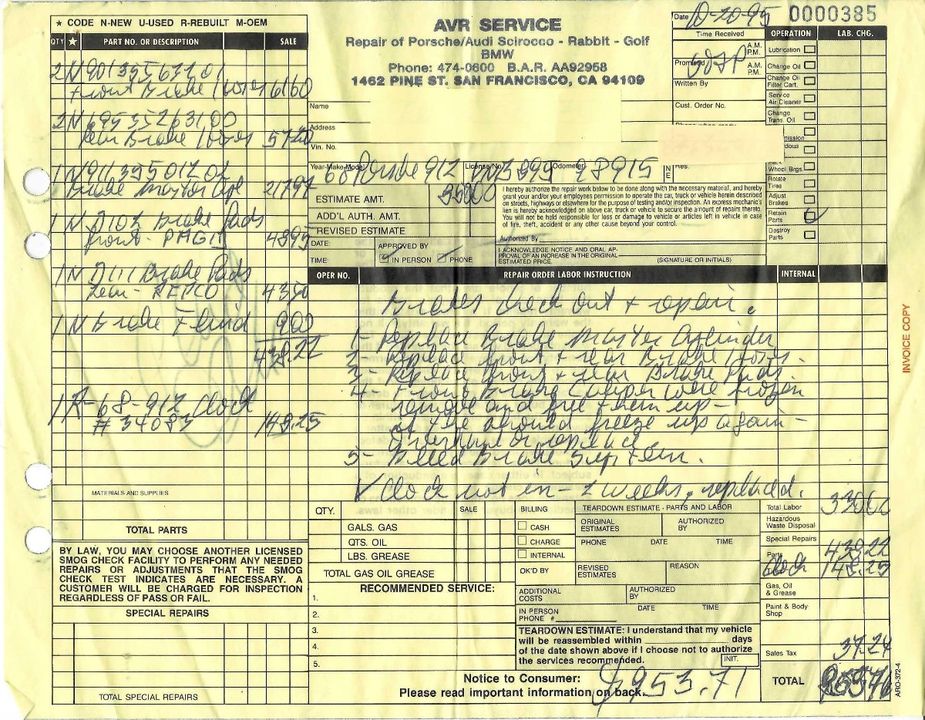 ★ CODE N-NEW U-USED R-REBUILT M-OEM
QTY ★ PART NO. OR DESCRIPTION SALE
2 N 90135563201
Front Brake Hoses 61 60
2 N 69535263100
Rear Brake Hoses 57 20
1 N 91135501202
Brake Master Cyl 217 97
1 N D103 Brake Pads
front - PAGID 48 95
1 N D111 Brake Pads
rear - REPCO 43 50
1 N Brake Fluid 9 00
438.22
1 R-68-912 Clock
# 34083 148.25
MATERIALS AND SUPPLIES
TOTAL PARTS
BY LAW, YOU MAY CHOOSE ANOTHER LICENSED
SMOG CHECK FACILITY TO PERFORM ANY NEEDED
REPAIRS OR ADJUSTMENTS THAT THE SMOG
CHECK TEST INDICATES ARE NECESSARY. A
CUSTOMER WILL BE CHARGED FOR INSPECTION
REGARDLESS OF PASS OR FAIL.
SPECIAL REPAIRS
TOTAL SPECIAL REPAIRS
AVR SERVICE
Repair of Porsche/Audi Scirocco - Rabbit - Golf
BMW
Phone: 474-0600 B.A.R. AA92958
1462 PINE ST. SAN FRANCISCO, CA 94109
Name
Address
Vin. No.
Year-Make-Model 68 Porsche 912 License No. Odometer 28915
ESTIMATE AMT. 350 00
ADD'L AUTH. AMT.
REVISED ESTIMATE
DATE: APPROVED BY
TIME: IN PERSON PHONE
I hereby authorize the repair work below to be done along with the necessary material, and hereby
grant you and/or your employees permission to operate the car, truck or vehicle herein described
on streets, highways or elsewhere for the purpose of testing and/or inspection. An express mechanic's
lien is hereby acknowledged on above car, truck or vehicle to secure the amount of repairs thereto.
You will not be held responsible for loss or damage to vehicle or articles left in vehicle in case
of fire, theft, accident or any other cause beyond your control.
Authorized By
I ACKNOWLEDGE NOTICE AND ORAL AP-
PROVAL OF AN INCREASE IN THE ORIGINAL
ESTIMATED PRICE. (SIGNATURE OR INITIALS)
Date 10-20-95 0000385
Time Received A.M. P.M.
Promised A.M. P.M.
Written By
Cust. Order No.
Res.
OPERATION LAB. CHG.
Lubrication
Change Oil
Change Oil Filter Cart.
Service Air Cleaner
Change Trans. Oil
Wheel Brgs
Rotate Tires
Adjust Brakes
Retain Parts
Destroy Parts
OPER NO. REPAIR ORDER LABOR INSTRUCTION INTERNAL
Brakes check out + repair.
1- Replace Brake Master Cylinder
2- Replace front + rear Brake Hoses.
3- Replace front + rear Brake Pads.
4- Front Brake Calipers were frozen
remove and free them up -
if they should freeze up again -
overhaul or replace
5- Bleed Brake System.
✓ Clock not in - 2 weeks. replaced.
INVOICE COPY
QTY. SALE
GALS. GAS
QTS. OIL
LBS. GREASE
TOTAL GAS OIL GREASE
BILLING
CASH
CHARGE
INTERNAL
OK'D BY
TEARDOWN ESTIMATE - PARTS AND LABOR
ORIGINAL ESTIMATES AUTHORIZED BY
PHONE DATE TIME
REVISED ESTIMATES REASON
ADDITIONAL COSTS AUTHORIZED BY
IN PERSON PHONE # DATE TIME
RECOMMENDED SERVICE:
1.
2.
3.
4.
5.
TEARDOWN ESTIMATE: I understand that my vehicle
will be reassembled within days
of the date shown above if I choose not to authorize
the services recommended. INIT.
Notice to Consumer:
Please read important information on back.
$953.71
Total Labor 330 00
Hazardous Waste Disposal
Special Repairs
Parts 438.22
Clock 148.25
Gas, Oil & Grease
Paint & Body Shop
Sales Tax 37.24
TOTAL
ARO-372-4